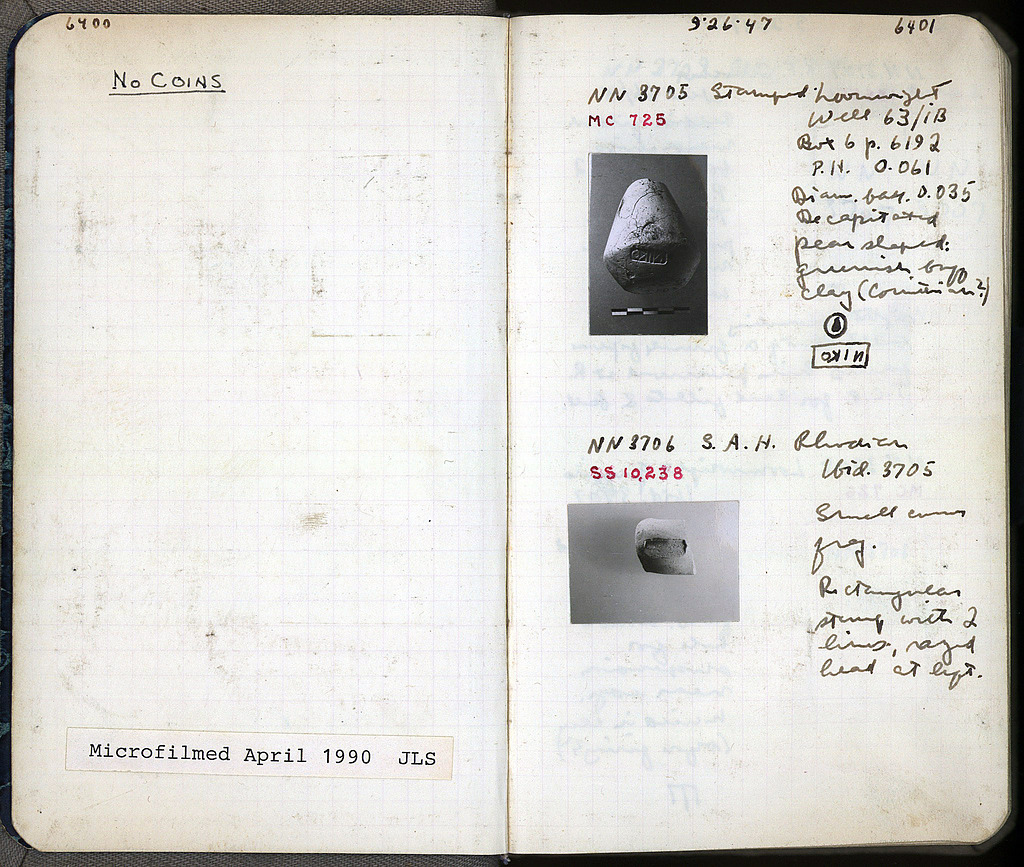 6400
No COINS
Microfilmed April 1990 JLS
9·26·47
6401
NN 3705 Stamped loomweight
MC 725
Well 63/ΙΒ
Box 6 p. 6192
P.H. 0.061
Diam. base. 0.035
Decapitated
pear shaped:
greenish buff
clay (Corinthian?)
NN 3706 S.A.H. Rhodian
SS 10,238
Ibid. 3705
Small curved
frag.
Rectangular
stamp with 2
lines, rayed
head at left.